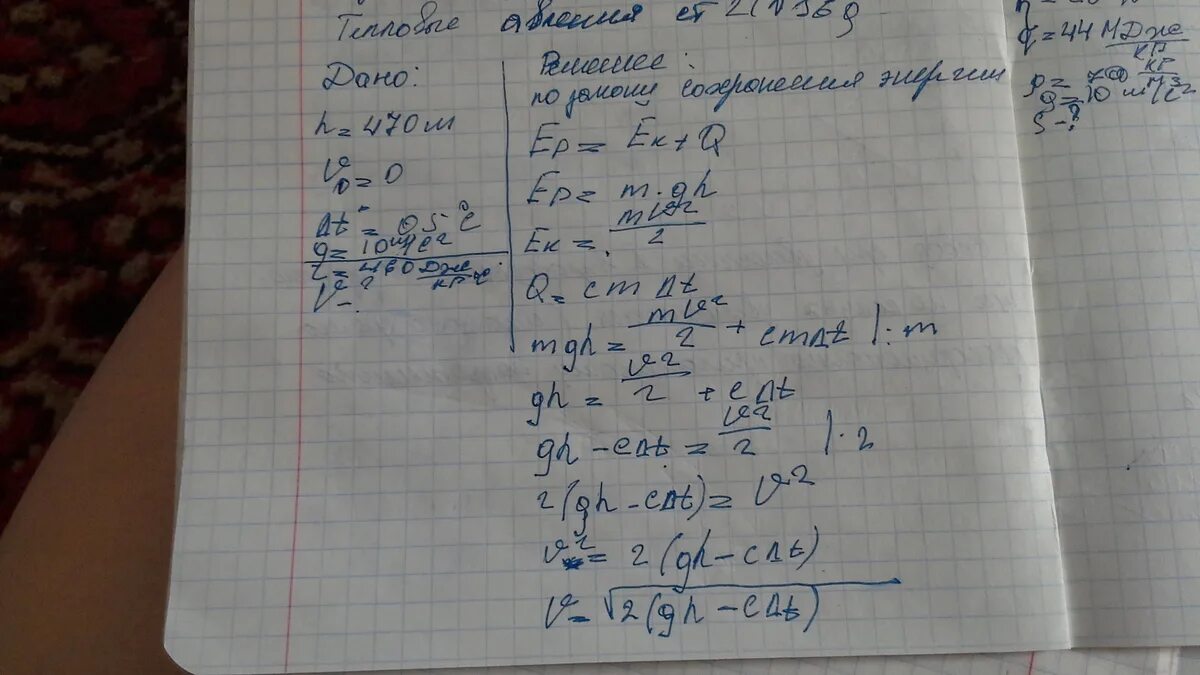 Тепловые явления ст 21 №36
Дано:
h = 470 м
V₀ = 0
Δt = 0,5 °C
g = 10 м/с²
c = 460 Дж/кг °C
V - ?
Решение:
по закону сохранения энергии
Eр = Eк + Q
Eр = m·gh
Eк = mV²/2
Q = cmΔt
mgh = mV²/2 + cmΔt |: m
gh = V²/2 + cΔt
gh - cΔt = V²/2 |· 2
2(gh - cΔt) = V²
V² = 2(gh - cΔt)
V = √2(gh - cΔt)
q = 44 МДж/кг
ρ = 700 кг/м³
g = 10 м/с²
S - ?